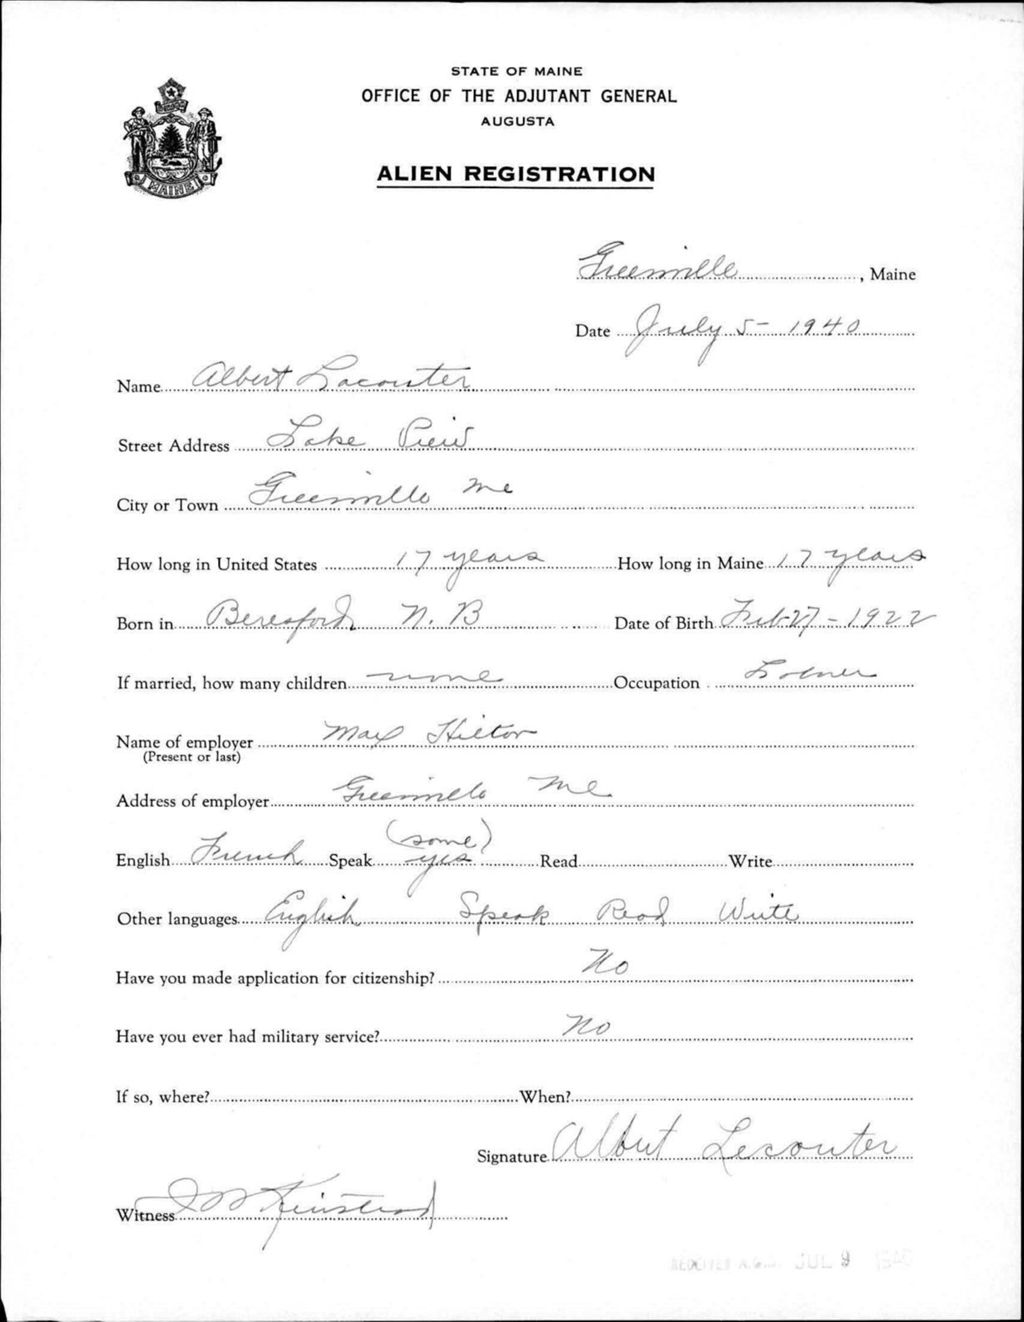 STATE OF MAINE
OFFICE OF THE ADJUTANT GENERAL
AUGUSTA
ALIEN REGISTRATION
MAINE
Greenville, Maine
Date July 5- 1940
Name Albert Lacouter
Street Address Lake View
City or Town Greenville Me
How long in United States 17 years How long in Maine 17 years
Born in Beresford, N. B Date of Birth Feb-27-1922
If married, how many children none Occupation
Name of employer Max Hilton
(Present or last)
Address of employer Greenville Me.
(some)
English French Speak yes Read Write
Other languages English Speak Read Write
Have you made application for citizenship? No
Have you ever had military service? No
If so, where? When?
Signature Albert Lecouter
Witness
JUL 9 1940